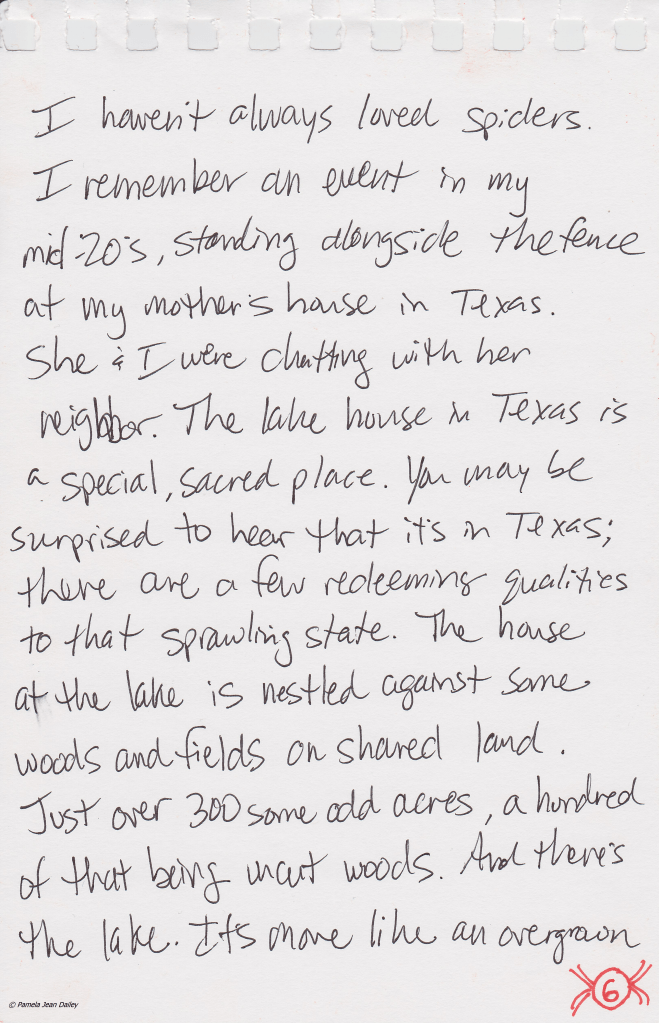 I haven't always loved spiders.
I remember an event in my
mid-20's, standing alongside the fence
at my mother's house in Texas.
She & I were chatting with her
neighbor. The lake house in Texas is
a special, sacred place. You may be
surprised to hear that it's in Texas;
there are a few redeeming qualities
to that sprawling state. The house
at the lake is nestled against some
woods and fields on shared land.
Just over 300 some odd acres, a hundred
of that being uncut woods. And there's
the lake. It's more like an overgrown
6
© Pamela Jean Dailey